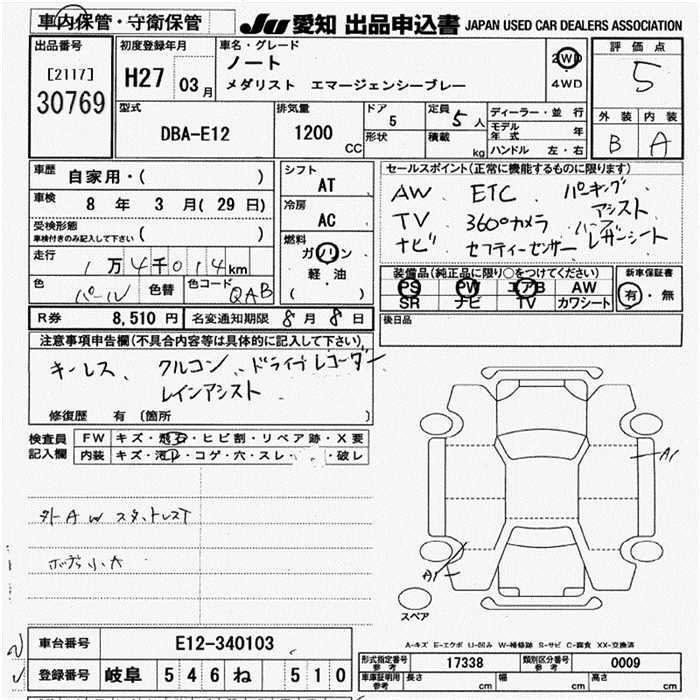 車内保管・守衛保管
JU 愛知 出品申込書 JAPAN USED CAR DEALERS ASSOCIATION
出品番号
[2117]
30769
初度登録年月
H27 03月
車名・グレード
ノート
メダリスト エマージェンシーブレー
2WD
・
4WD
評価点
5
外装 内装
B A
型式
DBA-E12
排気量
1200
CC
ドア
5
形状
定員 5人
積載 kg
ディーラー・並行
モデル年式 年
ハンドル 左・右
車歴 自家用・( )
車検 8 年 3 月( 29 日)
受検形態
車検付きのみ記入して下さい ( )
走行 1万4千014km
色 パール 色替 色コード QAB
シフト
AT
冷房
AC
燃料
ガソリン
・
軽・油
( )
セールスポイント(正常に機能するものに限ります)
AW、 ETC、 パーキングアシスト
TV 360°カメラ、 ハーフレザーシート
ナビ セフティーセンサー
装備品(純正品に限り○をつけてください)
PS PW エアB AW
SR ナビ TV カワシート
新車保証書
有・無
R券 8,510 円 名変通知期限 8月8日
後日品
注意事項申告欄(不具合内容等は具体的に記入して下さい)
キーレス、 クルコン、ドライブレコーダー
レインアシスト
修復歴 有 〔箇所 〕
検査員
記入欄
FW キズ・飛石・ヒビ割・リペア跡・X要
内装 キズ・汚れ・コゲ・穴・スレ・ ・破レ
A1
A1
スペア
車台番号 E12-340103
登録番号 岐阜 546 ね 510
A-キズ E-エクボ U-凹み W-補修跡 S-サビ C-腐食 XX-交換済
型式指定番号
参考 17338
類別区分番号
参考 0009
車庫証明用
参考 長さ cm 幅 cm 高さ cm